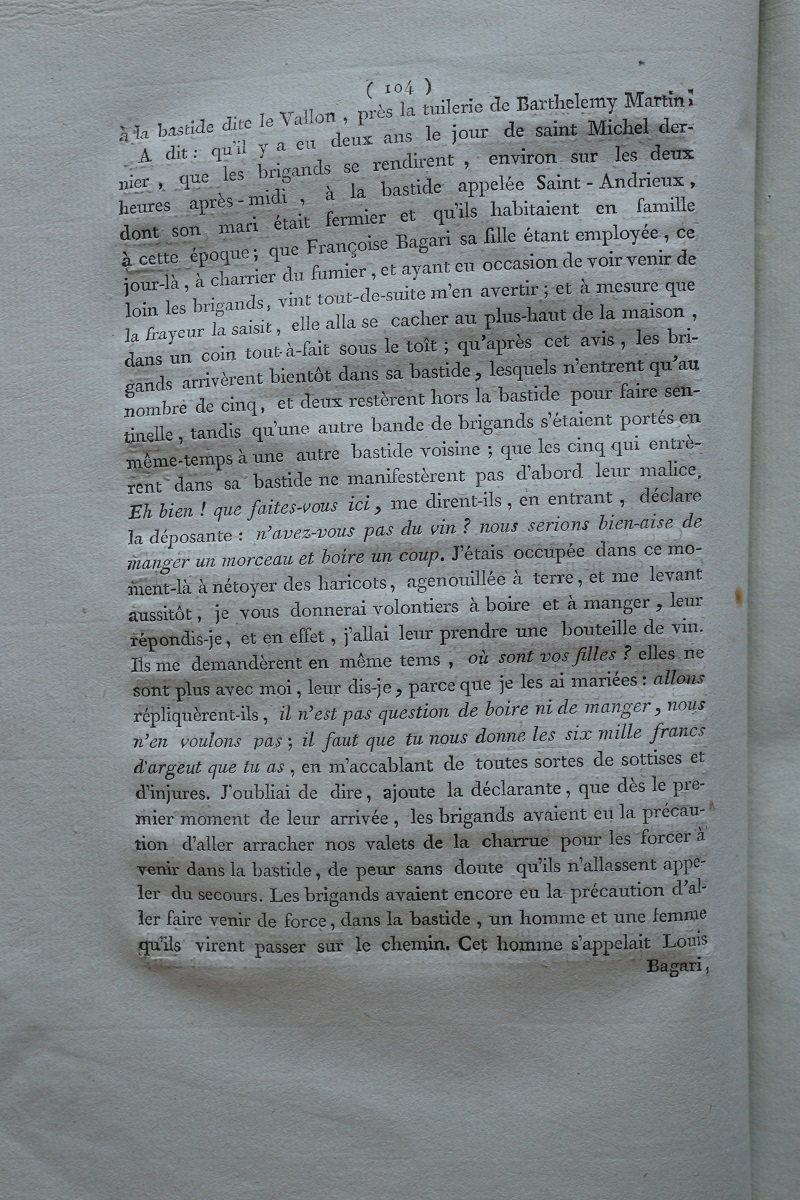 ( 104 )
à la bastide dite le Vallon , près la tuilerie de Barthelemy Martin ;
A dit : qu'il y a eu deux ans le jour de saint Michel der-
nier , que les brigands se rendirent , environ sur les deux
heures après-midi , à la bastide appelée Saint-Andrieux ,
dont son mari était fermier et qu'ils habitaient en famille
à cette époque ; que Françoise Bagari sa fille étant employée , ce
jour-là , à charrier du fumier , et ayant eu occasion de voir venir de
loin les brigands , vint tout-de-suite m'en avertir ; et à mesure que
la frayeur la saisit , elle alla se cacher au plus-haut de la maison ,
dans un coin tout-à-fait sous le toît ; qu'après cet avis , les bri-
gands arrivèrent bientôt dans sa bastide , lesquels n'entrent qu'au
nombre de cinq , et deux restèrent hors la bastide pour faire sen-
tinelle , tandis qu'une autre bande de brigands s'étaient portés en
même-temps à une autre bastide voisine ; que les cinq qui entrè-
rent dans sa bastide ne manifestèrent pas d'abord leur malice.
Eh bien ! que faites-vous ici , me dirent-ils , en entrant , déclare
la déposante : n'avez-vous pas du vin ? nous serions bien-aise de
manger un morceau et boire un coup. J'étais occupée dans ce mo-
ment-là à nétoyer des haricots , agenouillée à terre , et me levant
aussitôt , je vous donnerai volontiers à boire et à manger , leur
répondis-je , et en effet , j'allai leur prendre une bouteille de vin.
Ils me demandèrent en même tems , où sont vos filles ? elles ne
sont plus avec moi , leur dis-je , parce que je les ai mariées : allons
répliquèrent-ils , il n'est pas question de boire ni de manger , nous
n'en voulons pas ; il faut que tu nous donne les six mille francs
d'argeut que tu as , en m'accablant de toutes sortes de sottises et
d'injures. J'oubliai de dire , ajoute la déclarante , que dès le pre-
mier moment de leur arrivée , les brigands avaient eu la précau-
tion d'aller arracher nos valets de la charrue pour les forcer à
venir dans la bastide , de peur sans doute qu'ils n'allassent appe-
ler du secours. Les brigands avaient encore eu la précaution d'al-
ler faire venir de force , dans la bastide , un homme et une femme
qu'ils virent passer sur le chemin. Cet homme s'appelait Louis
Bagari ,